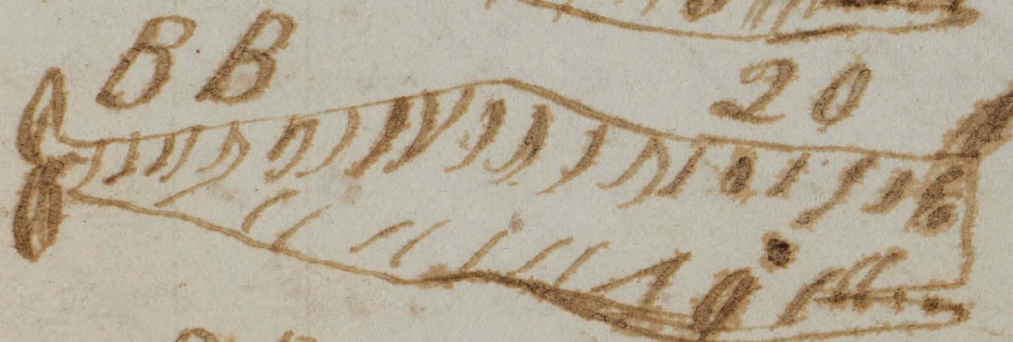 BB 20